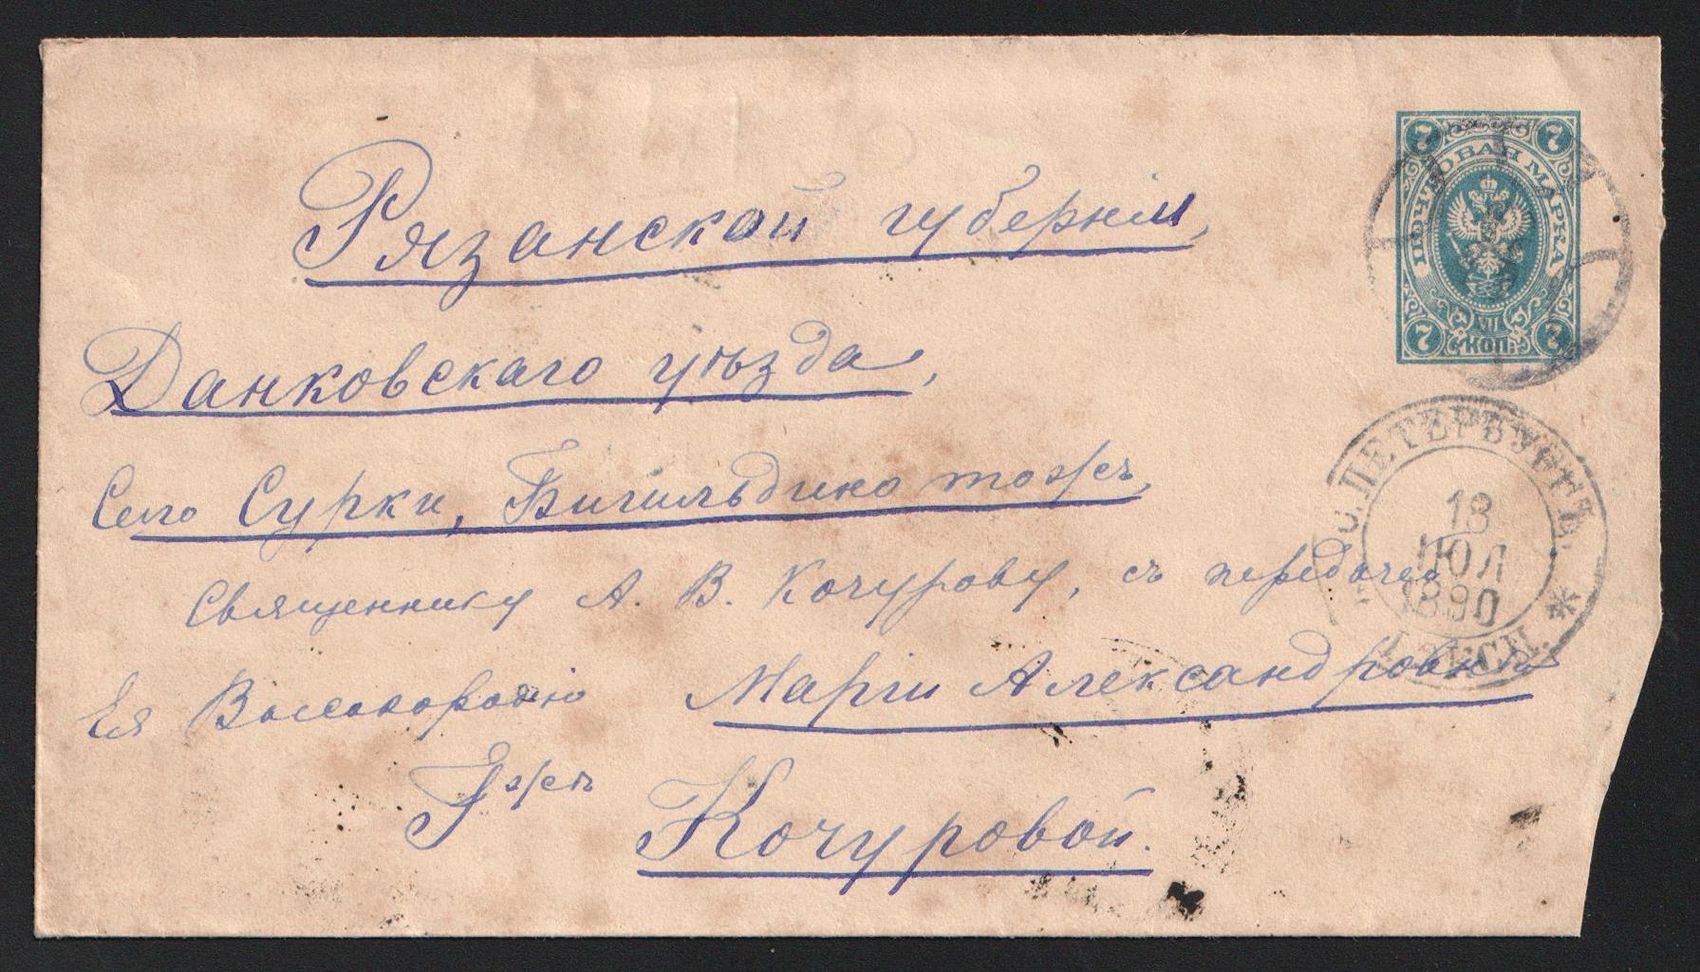 7 7
ПОЧТОВАЯ МАРКА
VII
7 КОП. 7
Рязанской губерніи,
Данковскаго уѣзда,
Село Сурки, Бигильдино тожъ,
Священнику А. В. Кочурову, съ передачею
Ея Высокородію Маріи Александровнѣ
Гжѣ Кочуровой.
С. ПЕТЕРБУРГЪ
18
ІЮЛ
1890